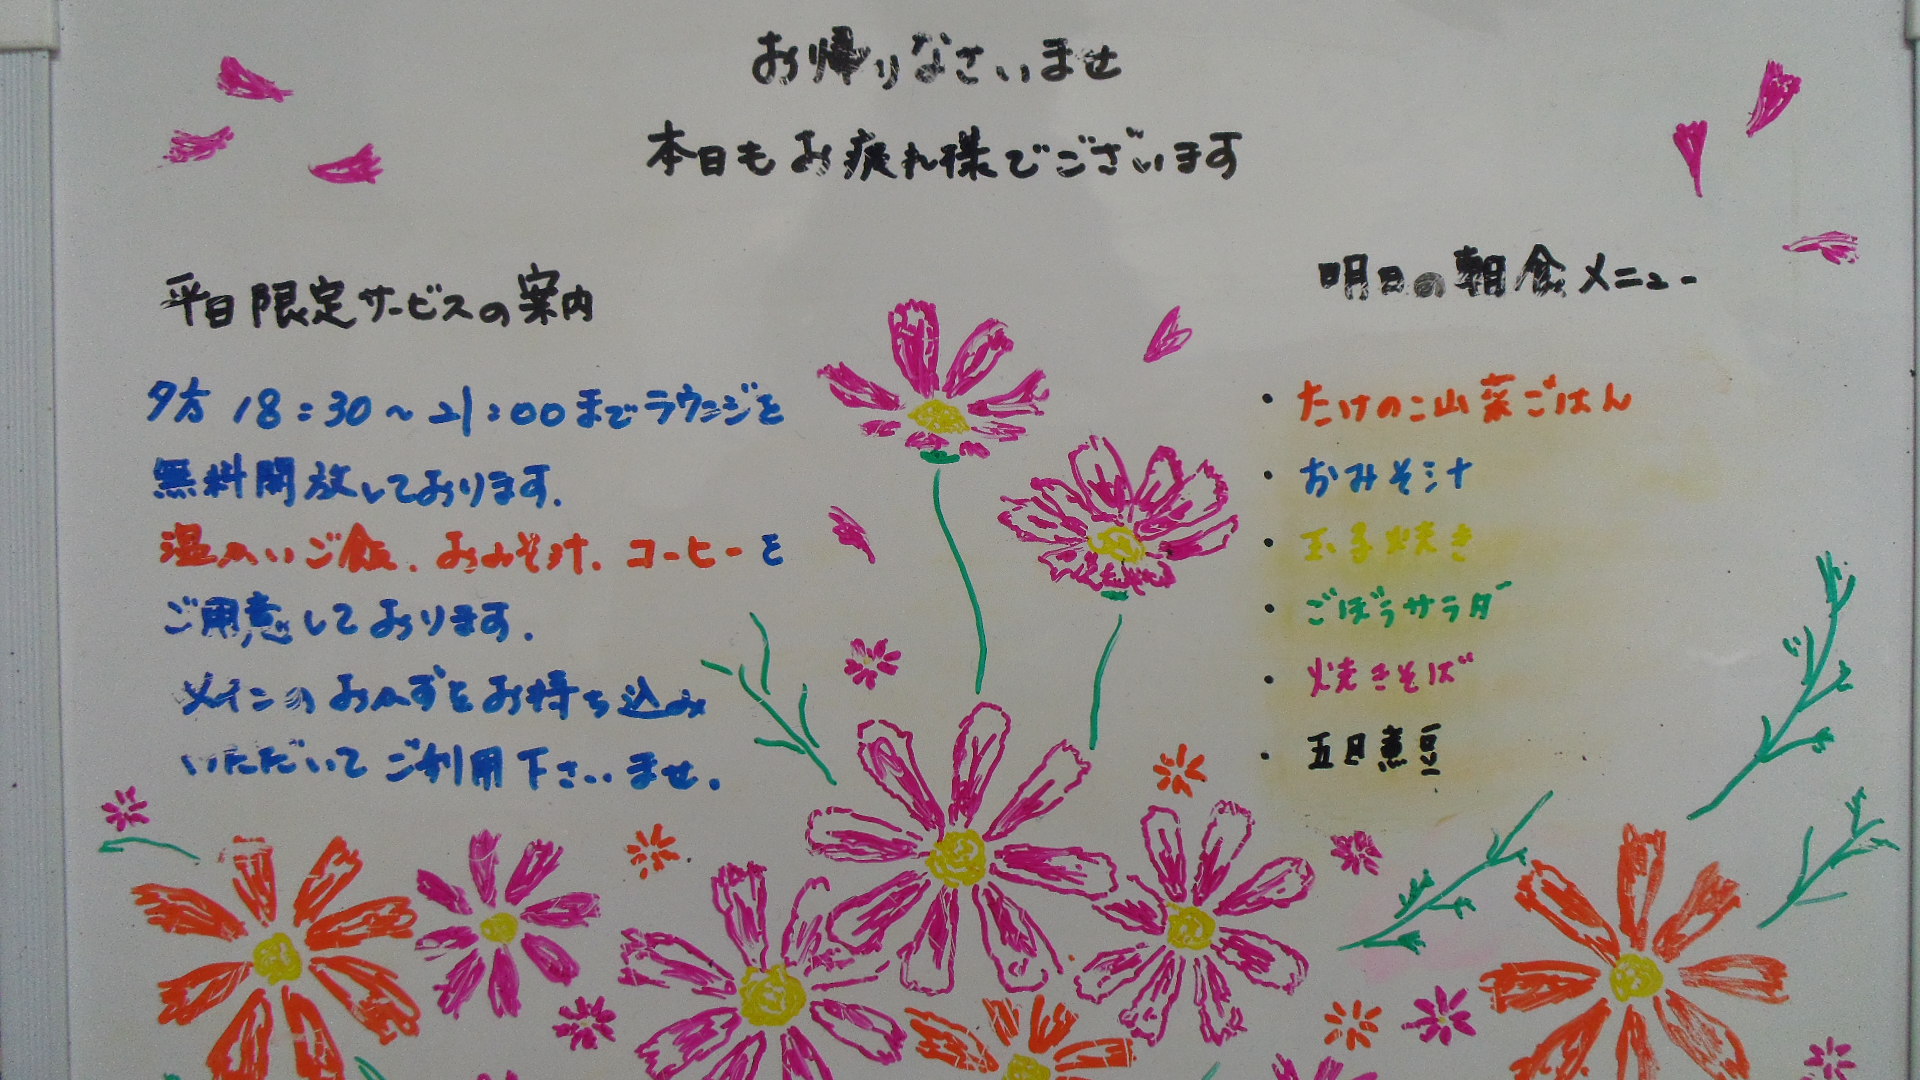 お帰りなさいませ
本日もお疲れ様でございます
平日限定サービスの案内
夕方 18:30～21:00までラウンジを
無料開放しております.
温かいご飯.おみそ汁.コーヒーを
ご用意しております.
メインのおかずをお持ち込み
いただいてご利用下さいませ.
明日の朝食メニュー
・たけのこ山菜ごはん
・おみそ汁
・玉子焼き
・ごぼうサラダ
・焼きそば
・五目煮豆